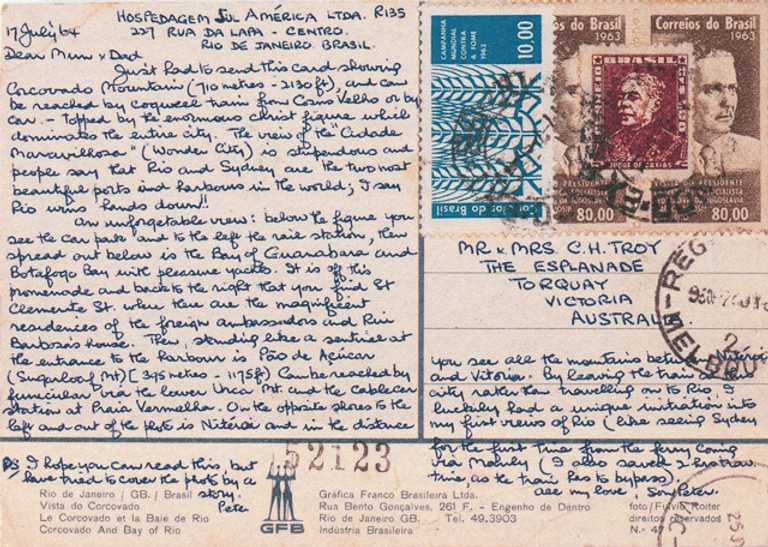 HOSPEDAGEM SUL AMÉRICA LTDA. R135
17 July '64
227 RUA DA LAPA - CENTRO.
RIO DE JANEIRO. BRASIL.
Dear Mum & Dad
Just had to send this card showing
Corcovado Mountain (710 metres - 2130ft), and can
be reached by cogwheel train from Cosmo Velho or by
car. - Topped by the enormous Christ figure which
dominates the entire city. The view of the "Cidade
Maravilhosa" (Wonder City) is stupendous and
people say that Rio and Sydney are the two most
beautiful ports and harbours in the world; I say
Rio wins hands down!!
An unforgetable view: below the figure you
see the car park and to the left the rail station, then
spread out below is the Bay of Guanabara and
Botafogo Bay with pleasure yachts. It is off this
promenade and back to the right that you find St
Clemente St. where there are the magnificent
residences of the foreign ambassadors and Rui
Barbosa's house. Then, standing like a sentinel at
the entrance to the harbour is Pão de Açúcar
(Sugarloaf Mt) [395 metres - 1175ft) Can be reached by
funicular via the lower Urca Mt. and the cablecar
station at Praia Vermelha. On the opposite shores to the
left and out of the photo is Niterói and in the distance
CAMPANHA
MUNDIAL
CONTRA
A FOME
1963
10,00
Correios do Brasil
Correios do Brasil
1963
Correios do Brasil
1963
CORREIO
BRASIL
DUQUE DE CAXIAS
80,00
VISITA DO PRESIDENTE
80,00
MR & MRS. C.H. TROY
THE ESPLANADE
TORQUAY
VICTORIA
AUSTRALIA
REG
MELBOU
2
you see all the mountains between Niterói
and Vitoria. By leaving the train at this
city rather than travelling on to Rio, I
luckily had a unique invitation into
my first views of Rio (like seeing Sydney
for the first time from the ferry coming
via Manly (I also saved 2 hrs travel
time, as the train has to bypass)
all my love, Son Peter.
PS I hope you can read this, but
have tried to cover the photo by a
story.
Peter
52123
Rio de Janeiro / GB. / Brasil
Vista do Corcovado
Le Corcovado et la Baie de Rio
Corcovado And Bay of Rio
GFB
Gráfica Franco Brasileira Ltda.
Rua Bento Gonçalves, 261 F. - Engenho de Dentro
Rio de Janeiro GB. Tel. 49.3903
Indústria Brasileira
foto/Fulvio Roiter
direitos reservados
N.º 47